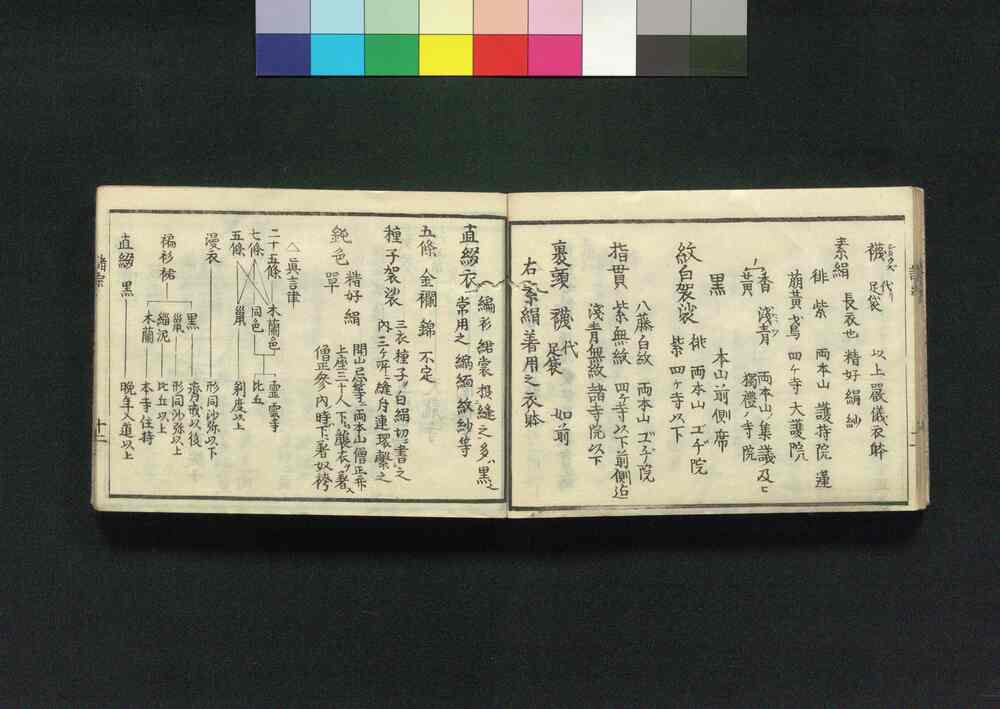 襪 代リ 足袋 以上嚴儀衣躰
素絹 長衣也 精好絹紗
緋 紫 両本山 護持院 運
萠黄 四ケ寺 大護院
香 淺青 両本山ノ集議及ヒ
黄 獨禮ノ寺院
黒 本山前側席
紋白袈裟 緋 両本山 院
紫 四ケ寺以下
八藤白紋 両本山 院
指貫 紫無紋 四ケ寺以下前側迠
淺青無紋 諸寺院以下
裹頭 襪代 足袋 如前
右素絹着用之衣躰
直綴衣 褊衫裙裳模縫之多ハ黒之
常用之 紋紗等
五條 金襴 錦 不定
種子袈裟 三衣種子ヲ白絹切ニ書之
内三ケ所縫付連環繋之
鈍色 精好絹 單
開山忌等ニ両本山僧正并
上座三十人下ニ襲衣ヲ著ス
僧正參内時下ニ著奴袴
眞言律
二十五條 木蘭色 靈雲寺
七條 同色 比丘
五條 剃度以上
漫衣 形同沙弥以下
褊衫裙 黒 齋戒以後
形同沙弥以上
緇泥 比丘以上
木蘭 本寺住持
直綴 黒 晩年入道以上
諸宗 十二